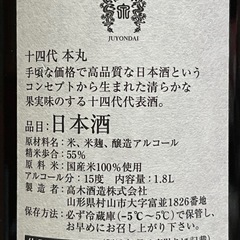 JUYONDAI
十四代 本丸
手頃な価格で高品質な日本酒という
コンセプトから生まれた清らかな
果実味のする十四代代表酒。
品目:日本酒
原材料名:米、米麹、醸造アルコール
精米歩合:55%
原料米:国産米100%使用
アルコール分:15度 内容量:1.8L
製造者:高木酒造株式会社
山形県村山市大字富並1826番地
保存方法:必ず冷蔵庫(-5℃〜5℃)で保管し、
お早めにお召し上がり下さい。